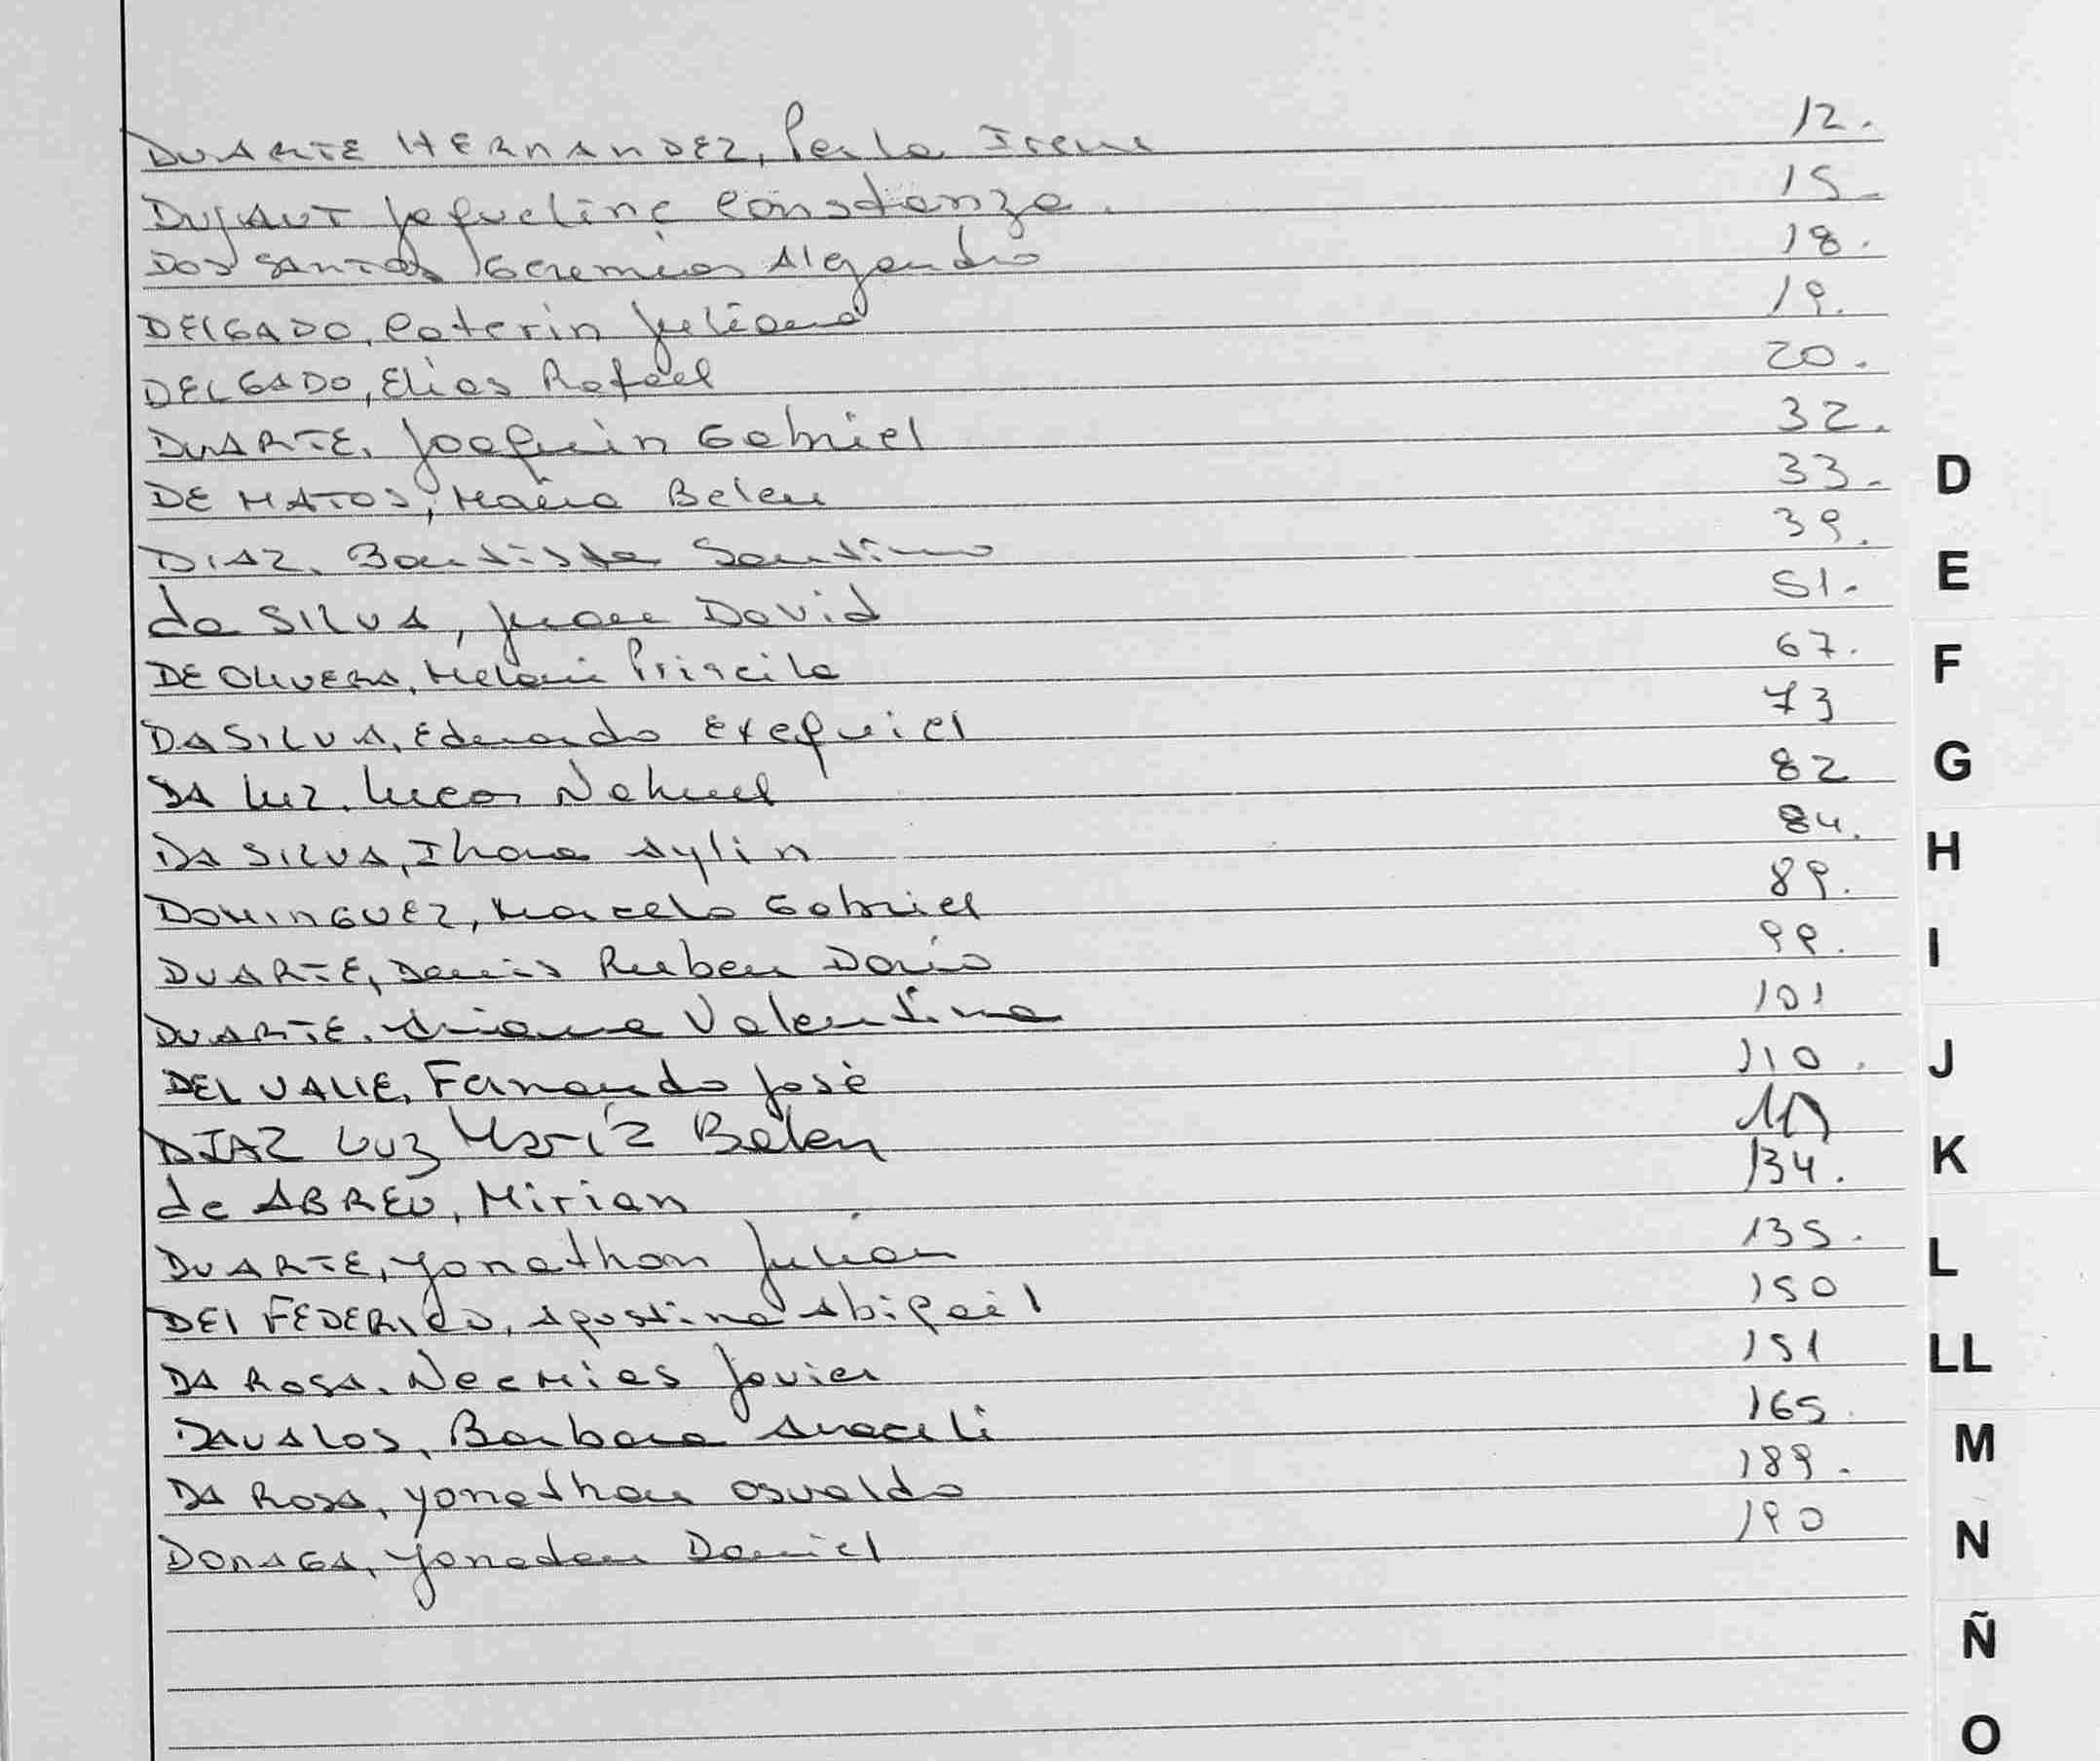 DUARTE HERNANDEZ, Perla Irene 12.
DUJAUT Jaqueline Constanza. 15.
DOS SANTOS Geremias Alejandro 18.
DELGADO, Caterin Juliana 19.
DELGADO, Elias Rafael 20.
DUARTE, Joaquin Gabriel 32.
DE MATOS, Maria Belen 33.
DIAZ, Bautista Santino 39.
D
da SILVA, Juan David 51.
E
DE OLIVERA, Melani Priscila 67.
F
DA SILVA, Eduardo Exequiel 73
DA LUZ, Lucas Nahuel 82
G
DA SILVA, Ihana Aylin 84.
H
DOMINGUEZ, Marcelo Gabriel 89.
DUARTE, Denis Ruben Dario 99.
I
DUARTE, Valentina 101
DEL VALLE, Fernando José 110.
J
DIAZ Luz María Belen
de ABREU, Mirian 134.
K
DUARTE, Yonathan Julian 135.
L
DEI FEDERICO, Agustina Abigail 150
DA ROSA, Neemias Javier 151
LL
DAVALOS, Barbara Araceli 165.
M
DA ROSA, Yonathan Osvaldo 189.
DORNAGA, Yonadan Daniel 190
N
Ñ
O